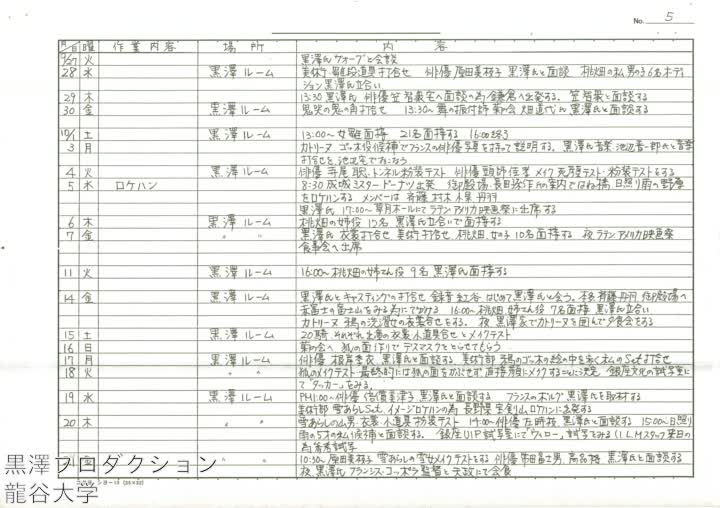 No. 5
月/日 曜 作業内容 場所 内容
9/27 火 黒澤氏 ウォーブと会談
28 水 黒澤ルーム 美術打 雛段道具打合せ 俳優 原田美枝子 黒澤氏と面談 桃畑の私 男の子6名オーディ
ション黒澤氏立合い
29 木 13:30 黒澤氏 俳優 笠智衆宅へ面談の為鎌倉へ出発する。笠智衆と面談する
30 金 黒澤ルーム 鬼火の鬼の角打合せ 13:30~ 舞の振付師 菊の会 畑道代氏 黒澤氏と面談する
10/1 土 黒澤ルーム 13:00~ 女雛面接 21名面接する 16:00終了
3 月 カトリーヌ ゴッホ役候補でフランスの俳優写真を持って説明する。黒澤氏音楽 池辺晋一郎氏と音楽
打合せを、池辺宅でおこなう
4 火 黒澤ルーム 俳優 寺尾聰、トンネル扮装テスト 俳優 頭師佳孝 メイク 死顔テスト・扮装テストをする
5 水 ロケハン 8:30 成城ミスタードーナツ出発 御殿場、長田孫作氏の案内ではね橋、日照り雨の野原
をロケハンする メンバーは 斉藤 村木 保 丹羽
黒澤氏 17:00~ 草月ホールにてラテンアメリカ映画祭に出席する
6 木 黒澤ルーム 桃畑の姉役 15名 黒澤氏立合いで面接する
7 金 〃 〃 黒澤氏 衣裳打合せ 美術打合せ、桃畑、女の子 10名面接する 夜 ラテンアメリカ映画祭
食事会へ出席
11 火 黒澤ルーム 16:00~ 桃畑の姉さん役 9名 黒澤氏面接する
14 金 黒澤ルーム 黒澤氏とキャスティングの打合せ 録音 紅谷 はじめて黒澤氏と会う。 斉藤 丹羽 御殿場へ
赤富士の富士山をみる為にでかける 16:00~ 桃畑 姉さん役 7名面接 黒澤氏立合い
カトリーヌ 鴉の洗濯女の衣裳合せをする。 夜 黒澤家でカトリーヌを囲んで夕食会をする
15 土 黒澤ルーム 20騎 それぞれ出席の衣裳・小道具合せとメイクテスト
16 日 菊の会へ 狐の面作りで デスマスクをとらせてもらう
17 月 黒澤ルーム 俳優 根岸季衣 黒澤氏と面談する 美術部 鴉のゴッホの絵の中を歩く私のSet打合せ
18 火 〃 〃 狐のメイクテスト 最終的には狐の面をかぶせず直接顔にメイクすることに決定 銀座文化の試写室に
て「タッカー」をみる。
19 水 黒澤ルーム PM1:00~ 俳優 倍賞美津子 黒澤氏と面談する フランスのボルグ 黒澤氏を取材する
美術部 雪あらしSet、イメージロケハンの為 長野県 宝剣山 ロケハンに出発する
20 木 〃 〃 雪あらしの山男 衣裳 小道具 扮装テスト 14:00~ 俳優 黒澤氏と面談する 15:00~ 日照り
雨の5才の私候補と面談する。 銀座UIP試写室にて「ウィロー」試写をみる(ILMスタッフ来日の
為参考試写
21 金 10:30~ 原田美枝子 雪あらしの雪女メイクテストをする 俳優 常田富士男、高品格、黒澤氏と面談する
夜 黒澤氏 フランシス・コッポラ監督と天政にて会食
黒澤プロダクション
龍谷大学